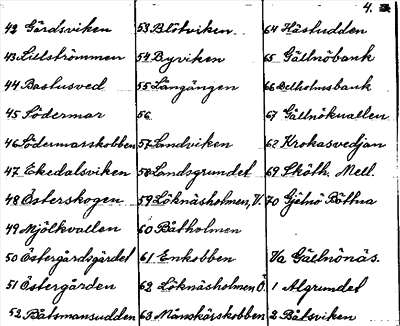 4.
42 Gårdsviken
43 Lillströmmen
44 Bastusved
45 Södermar
46 Södermarskobben
47 Ekedalsviken
48 Österskogen
49 Mjölkvallen
50 Östergårdsgärdet
51 Östergården
52 Båtsmansudden
53 Blötviken
54 Byviken
55 Långängen
56
57 Landviken
58 Landsgrundet
59 Löknäsholmen, V.
60 Båtholmen
61 Enkobben
62 Löknäsholmen Ö.
63 Månskärskobben
64 Hästudden
65 Gällnöbank
66 Delholmsbank
67 Gällnökvallen
62 Krokasvedjan
69 Sköth. Mell.
70 Gjälnö Röttna
Va Gällnönäs.
1 Algrundet
2 Bålsviken